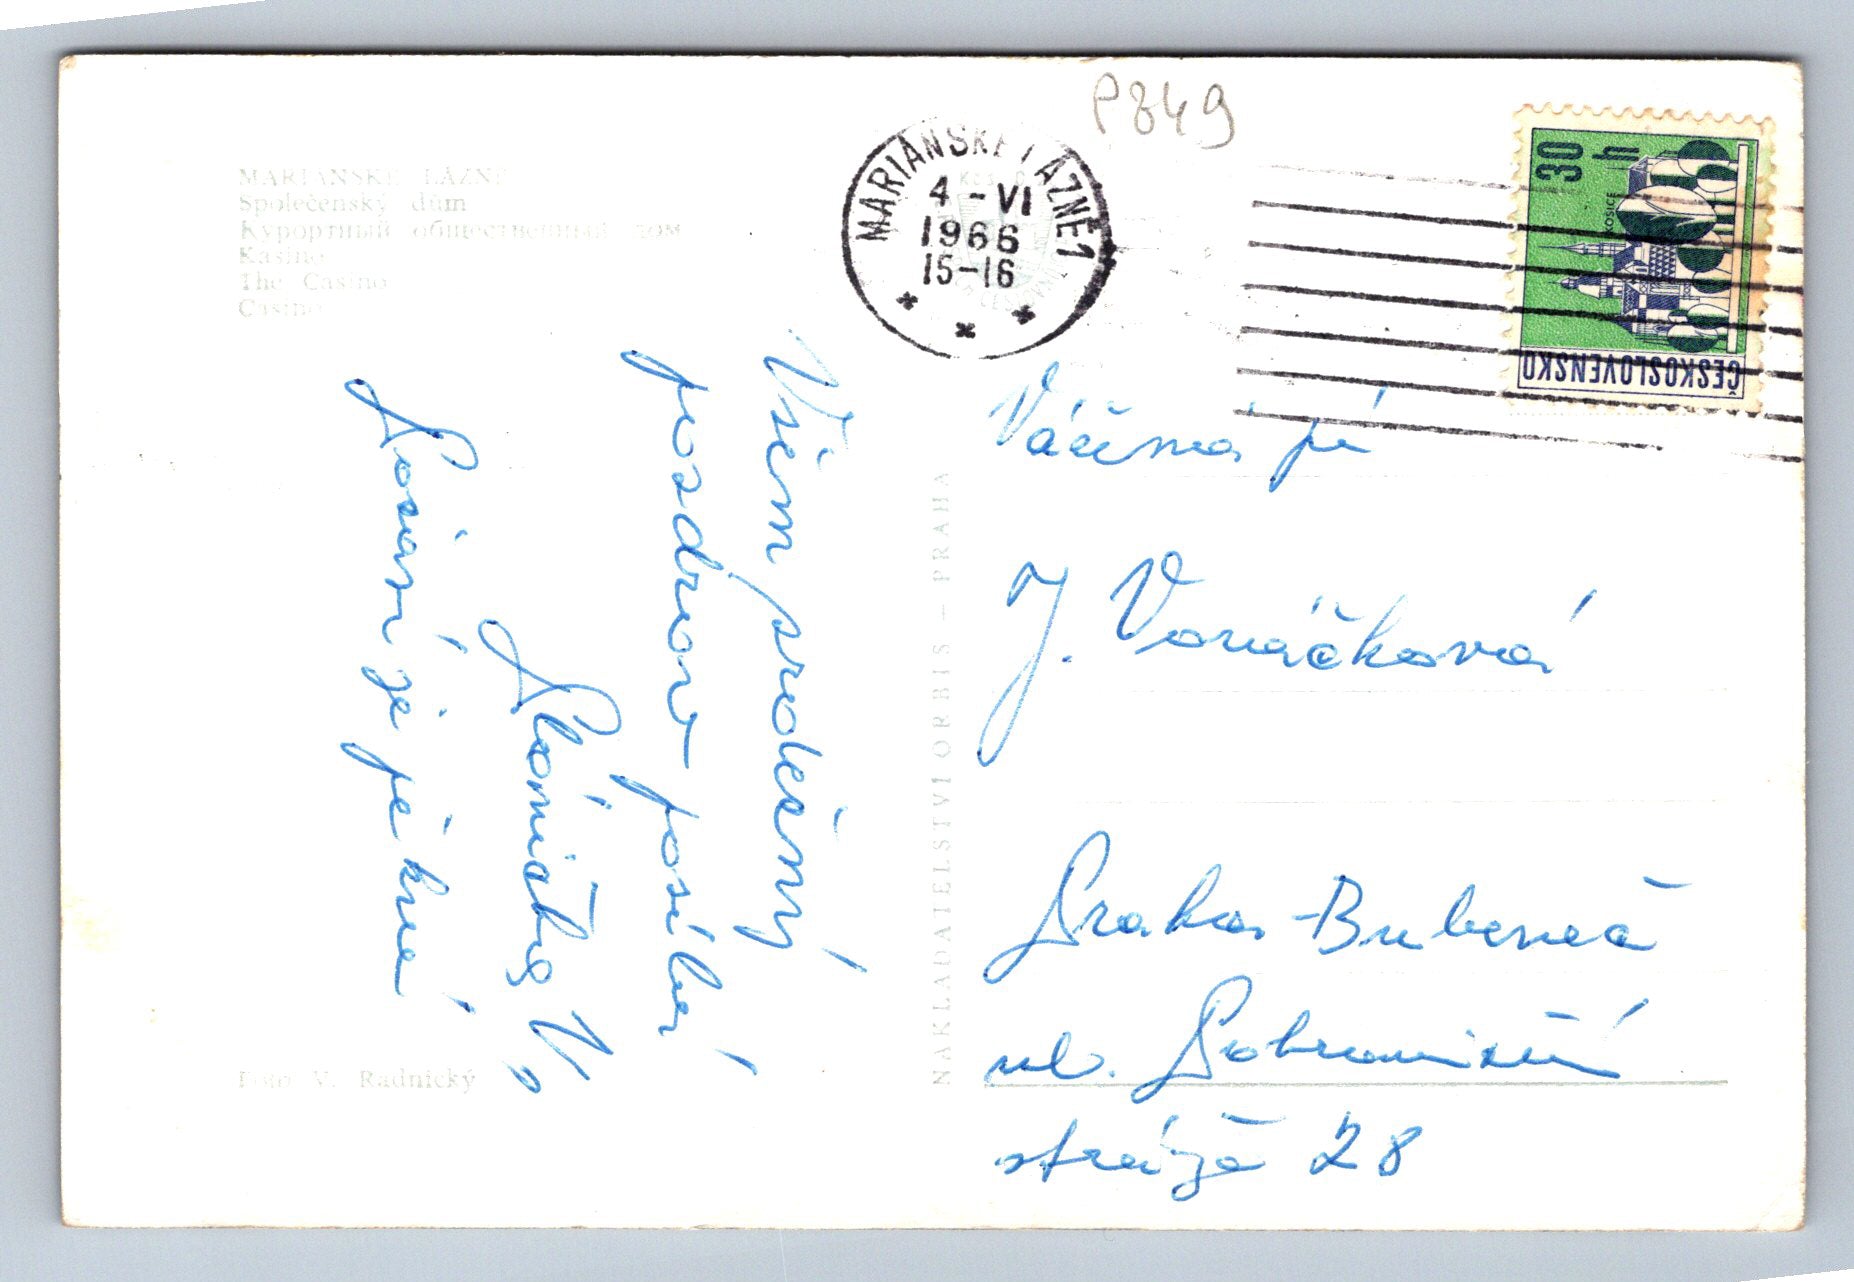 P849
MARIÁNSKÉ LÁZNĚ
Společenský dům
Курортный общественный дом
Kasino
The Casino
Casino
MARIÁNSKÉ LÁZNĚ 1
4 -VI
1966
15-16
30 h
KOŠICE
ČESKOSLOVENSKO
Všem srdečný
pozdrav posílá
V.
Počasí je pěkné
Vážená pí
J. Vonáčková
Praha-Bubeneč
ul.
stráže 28
NAKLADATELSTVÍ ORBIS - PRAHA
Foto V. Radnický